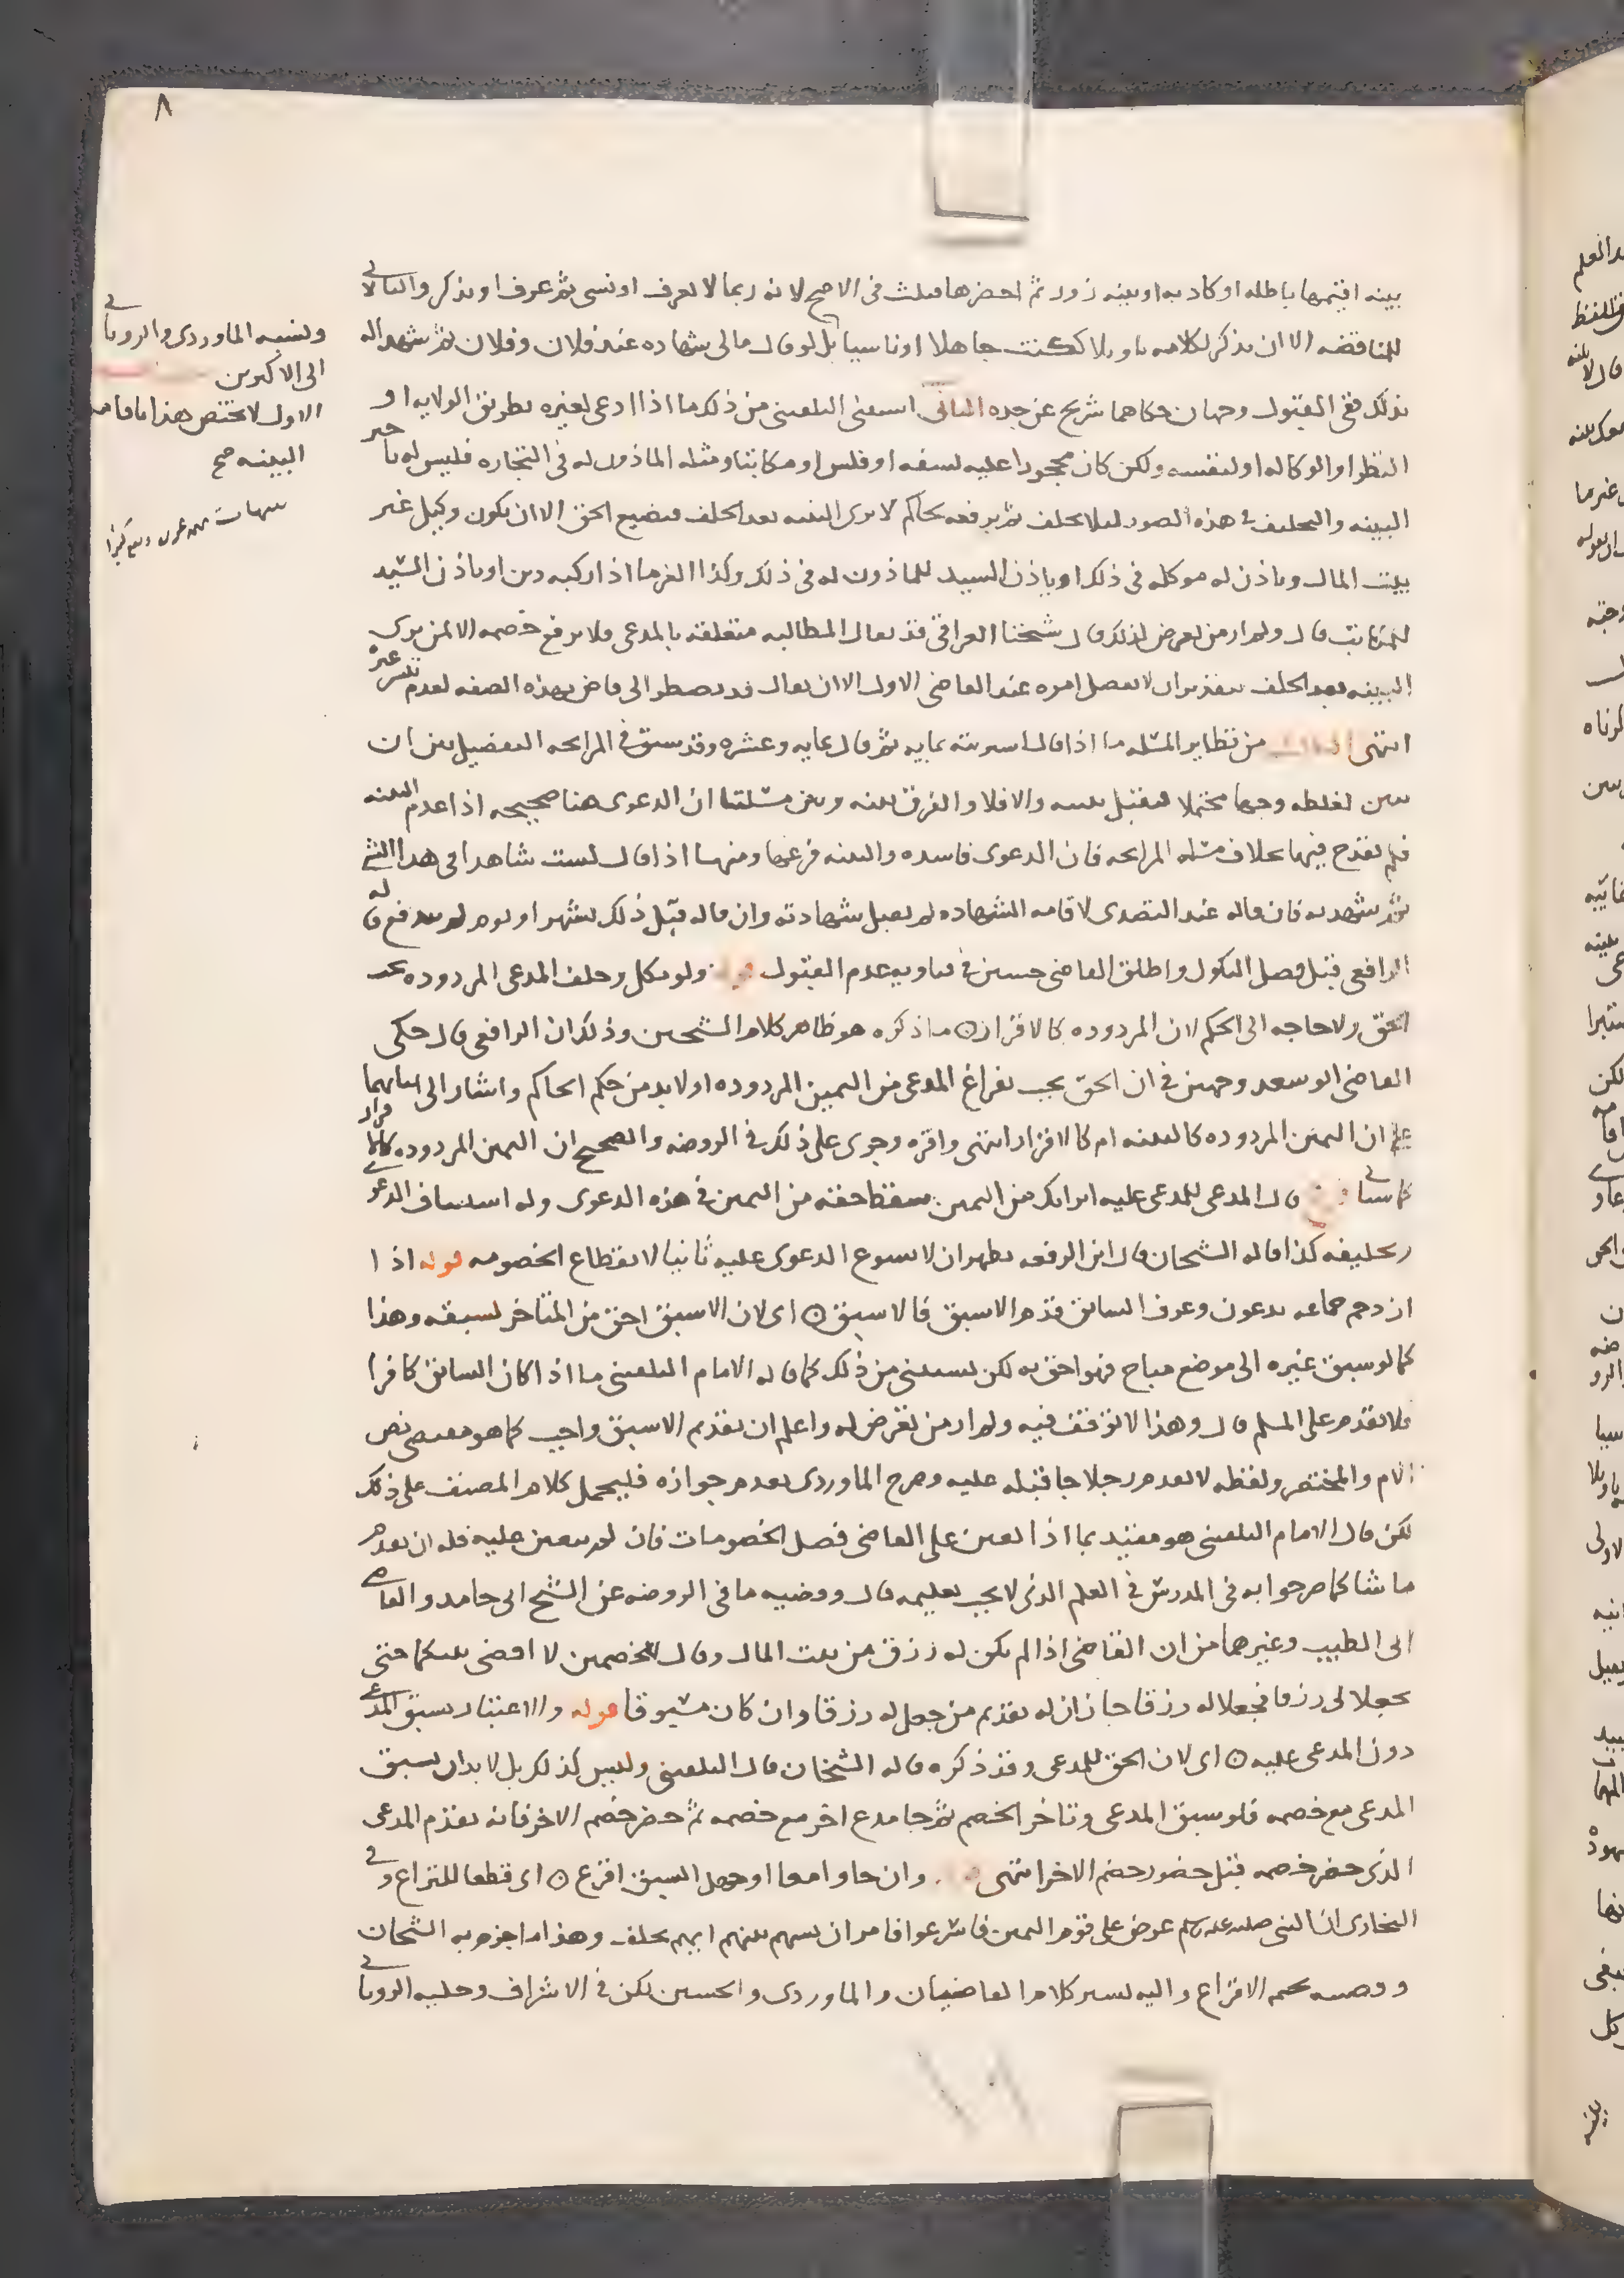 ٨
بينه اقيمها باطله او كاذبه او بينه زور ثم احضرها قبلت في الاصح لانه ربما لا يعرف او نسي ثم عرف او تذكر والثاني لا
للمناقضه الا ان يذكر لكلامه تاويلا ككنت جاهلا او ناسيا بل لو قال مالي شهاده عند فلان وفلان ثم شهدا له
بذلك ففي القبول وجهان حكاهما شريح عن جده الثاني استثنى البلقيني من ذلك ما اذا ادعى لغيره بطريق الولايه او
النظر او الوكاله او لنفسه ولكن كان محجورا عليه لسفه او فلس او مكاتبا ومثله الماذون له في التجاره فليس له تاخير
البينه والتحليف في هذه الصور ليلا يحلف ثم يرفعه لحاكم لا يرى البينه بعد الحلف فيضيع الحق الا ان يكون وكيل غير
بيت المال وياذن له موكله في ذلك او ياذن السيد للماذون له في ذلك وكذا الغرما اذا ركبه دين او ياذن السيد
للمكاتب قال ولم ار من تعرض لذلك قال شيخنا العراقي قد يقال المطالبه متعلقه بالمدعي فلا يرفع خصمه الا لمن يرى
البينه بعد الحلف بتقدير ان لا ينفصل امره عند القاضي الاول الا ان يقال قد يضطر الى قاض بهذه الصفه لعدم تيسر غيره
انتهى الثالث من نظاير المسئله ما اذا قال اشتريته بمايه ثم قال بمايه وعشره وقد سبق في المرابحه التفصيل بين ان
يبين لغلطه وجها محتملا فيقبل بينته والا فلا والفرق بينه وبين مسئلتنا ان الدعوى هنا صحيحه اذا عدم البينه
فلم يقدح فيها بخلاف مسئله المرابحه فان الدعوى فاسده والبينه فرعها ومنها اذا قال لست شاهدا في هذا الشي
ثم شهد به فان قاله عند التصدي لاقامه الشهاده لم يقبل شهادته وان قاله قبل ذلك بشهر او يوم لم يندفع قاله
الرافعي قبيل فصل النكول واطلق القاضي حسين في فتاويه عدم القبول قوله ولو نكل وحلف المدعي المردوده يجب
الحق ولا حاجه الى الحكم لان المردوده كالاقرار ن ما ذكره هو ظاهر كلام الشيخين وذلك ان الرافعي قال حكى
القاضي ابو سعد وجهين في ان الحق يجب بفراغ المدعي من اليمين المردوده او لا بد من حكم الحاكم واشار الى انبنايهما
على ان اليمين المردوده كالبينه ام كالاقرار انتهى واقره وجرى على ذلك في الروضه والصحيح ان اليمين المردوده كالاقرار
كما سياتي فرع قال المدعي للمدعى عليه ابراتك من اليمين سقط حقه من اليمين في هذه الدعوى وله استيناف الدعوى
وتحليفه كذا قاله الشيخان قال ابن الرفعه يظهر ان لا تسوغ الدعوى عليه ثانيا لانقطاع الخصومه قوله اذا
ازدحم جماعه يدعون وعرف السابق قدم الاسبق فالاسبق ن اي لان الاسبق احق من المتاخر لسبقه وهذا
كما لو سبق غيره الى موضع مباح فهو احق به لكن يستثنى من ذلك كما قاله الامام البلقيني ما اذا كان السابق كافرا
فلا يقدم على المسلم قال وهذا لا توقف فيه ولم ار من تعرض له واعلم ان تقديم الاسبق واجب كما هو مقتضى نص
الام والمختصر ولفظه لا يقدم رجلا جا قبله عليه وصرح الماوردي بعدم جوازه فليحمل كلام المصنف على ذلك
لكن قال الامام البلقيني هو مقيد بما اذا تعين على القاضي فصل الخصومات فان لم يتعين عليه فله ان يقدم
ما شا كما صرحوا به في المدرس في العلم الذي لا يجب تعليمه قال وقضيه ما في الروضه عن الشيخ ابي حامد والقاضي
ابي الطيب وغيرهما من ان القاضي اذا لم يكن له رزق من بيت المال وقال للخصمين لا اقضي بينكما حتى
تجعلا لي رزقا فجعلا له رزقا جاز ان له تقديم من جعل له رزقا وان كان مسبوقا قوله والاعتبار بسبق المدعي
دون المدعى عليه ن اي لان الحق للمدعي وقد ذكره قاله الشيخان قال البلقيني وليس كذلك بل لا بد ان يسبق
المدعي مع خصمه فلو سبق المدعي وتاخر الخصم ثم جا مدع اخر مع خصمه ثم حضر خصم الاخر فانه يقدم المدعي
الذي حضر خصمه قبل حضور خصم الاخر انتهى قوله وان جاوا معا او جهل السبق اقرع ن اي قطعا للنزاع وفي
البخاري ان النبي صلى الله عليه وسلم عرض على قوم اليمين فاسرعوا فامر ان يسهم بينهم ايهم يحلف وهذا ما جزم به الشيخان
وقضيته تحتم الاقراع واليه يشير كلام القاضيان والماوردي والحسين لكن في الاشراف وحليه الروياني
ونسبه الماوردي والروياني
الى الاكثرين
الاول لا يختص هذا باقامه
البينه صح